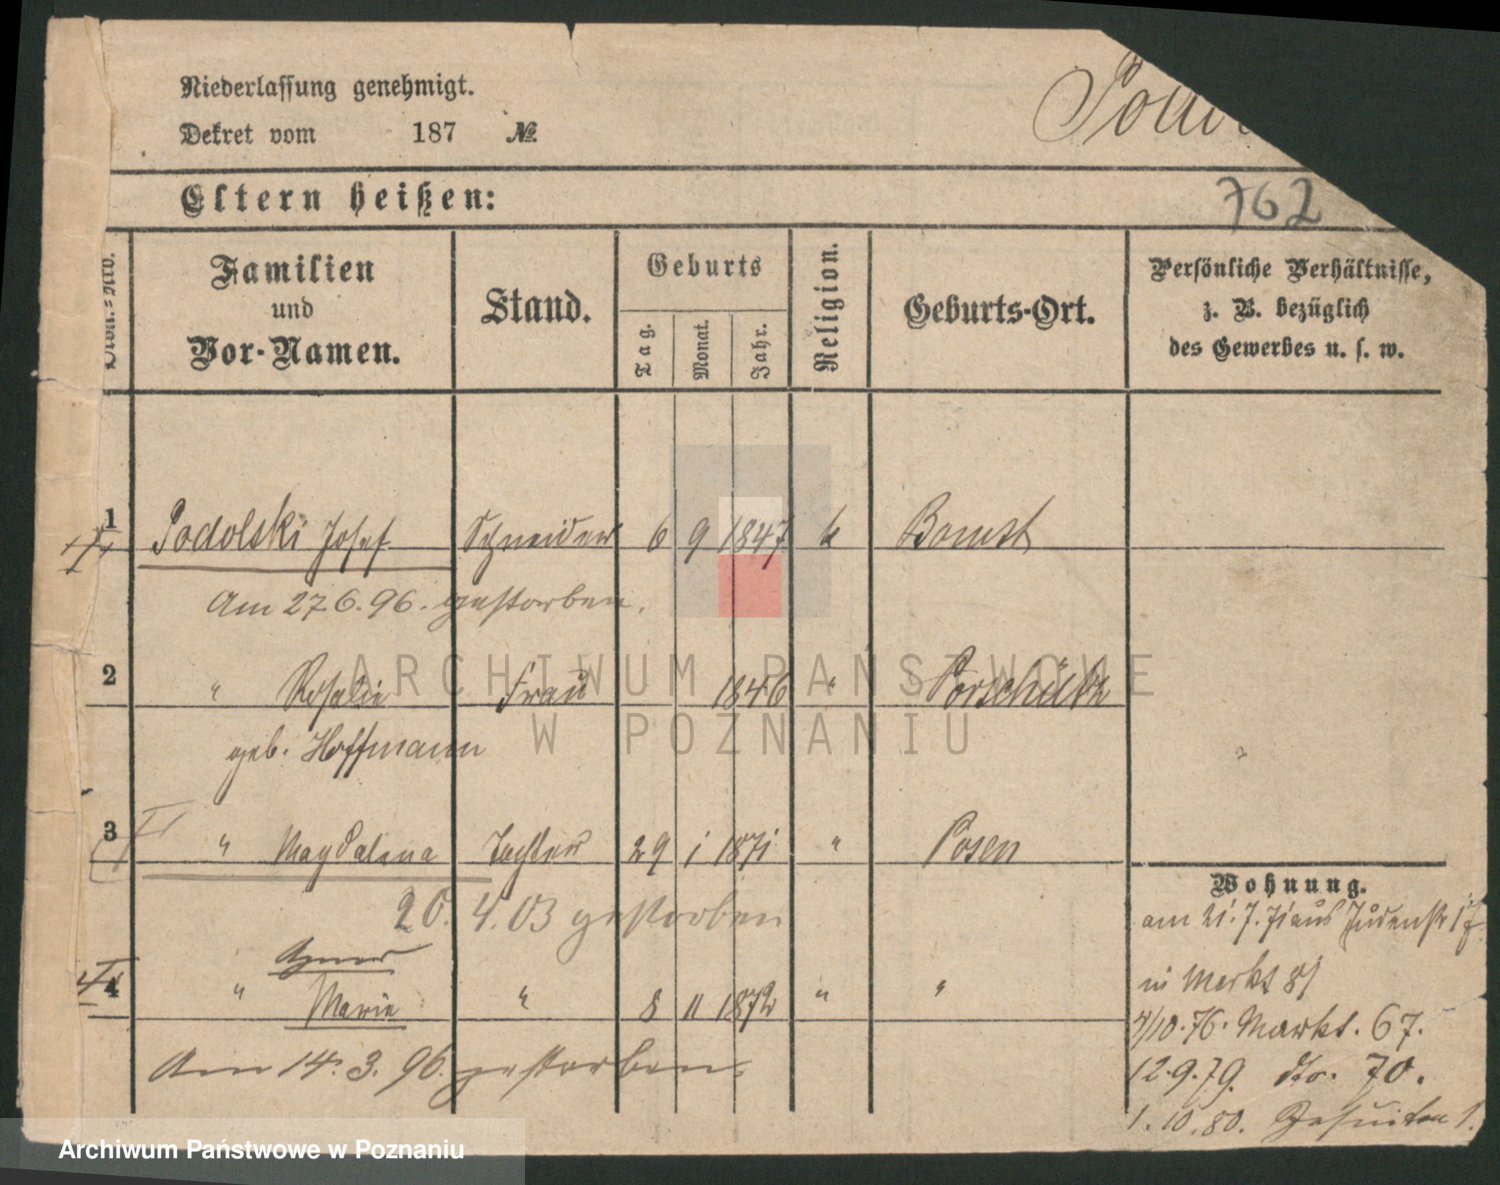 Niederlassung genehmigt.
Dekret vom 187 №
Podol
762
Eltern heißen:
Familien und Vor-Namen.
Stand.
Geburts
Tag. Monat. Jahr.
Religion.
Geburts-Ort.
Persönliche Verhältnisse,
z. B. bezüglich
des Gewerbes u. s. w.
1 Podolski Josef Schneider 6 9 1847 k Bomst
Am 27.6.96. gestorben.
2 " Rosalie Frau 1846 " Porschütz
geb. Hoffmann
3 " Magdalena Tochter 29 1 1871 " Posen
20. 4. 03 gestorben
Agnes
4 " Marie " 8 11 1872 " "
Am 14. 3. 96. gestorben.
Wohnung.
am 21. 7. 71 aus Judenstr
in Markt 81
7/10.76. Markt. 67.
12.9.79. dto. 70.
1.10.80. Jesuiten 1.
ARCHIWUM PAŃSTWOWE
W POZNANIU
Archiwum Państwowe w Poznaniu